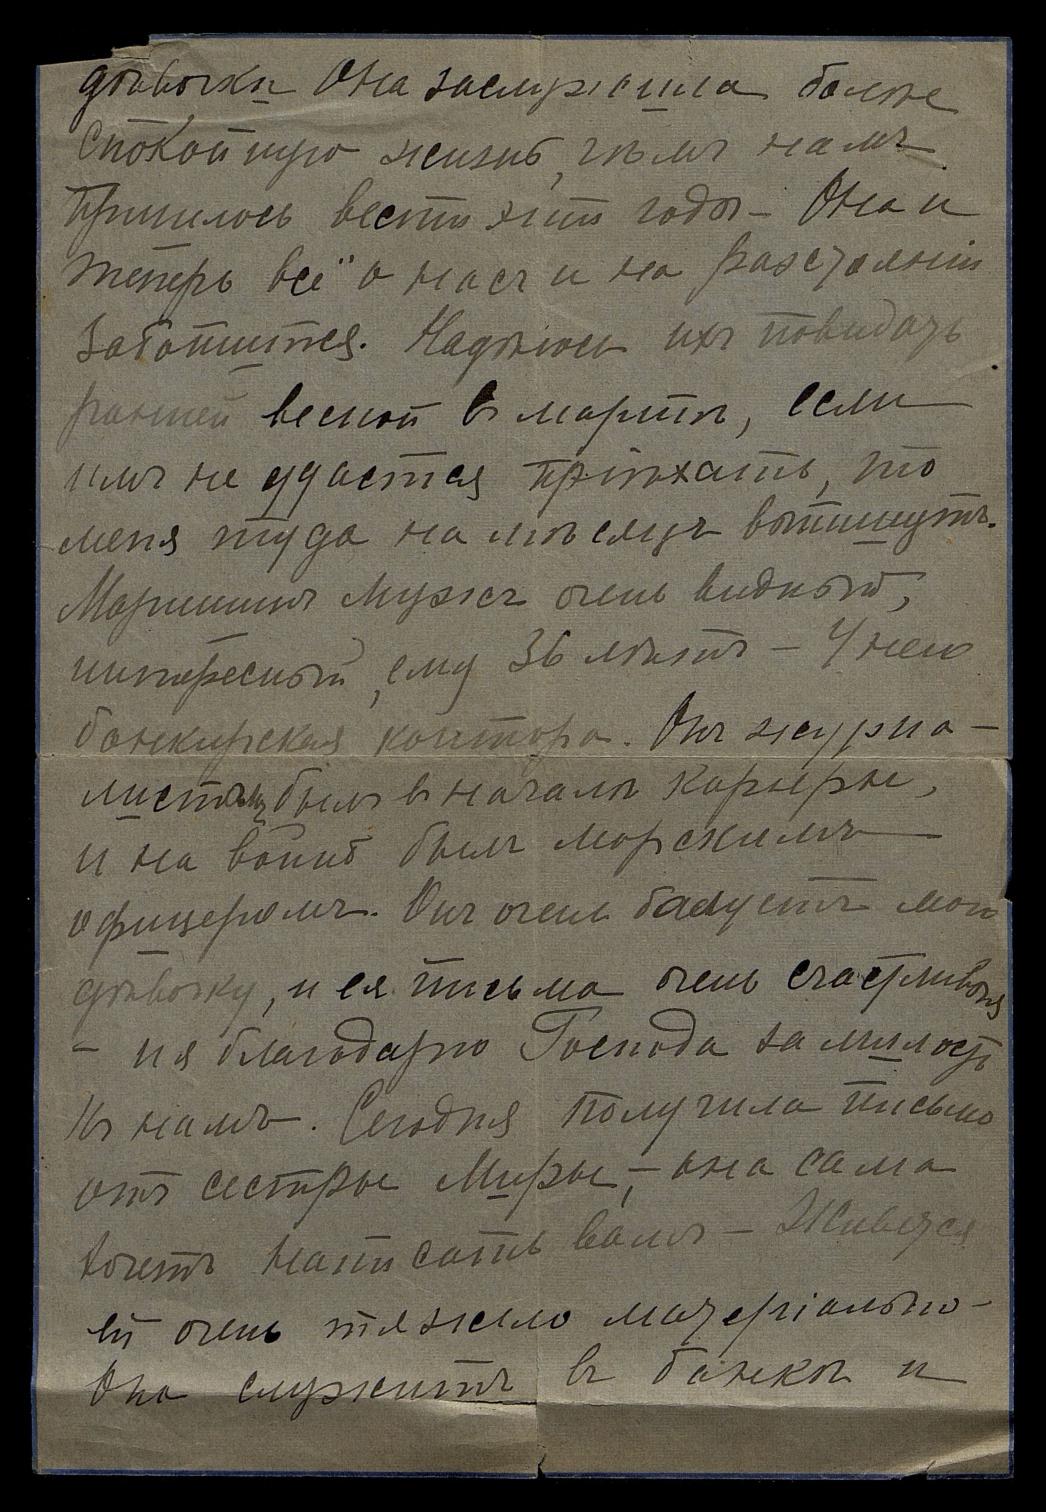 дѣвочки Она заслужила болѣе
спокойную жизнь, чѣмъ намъ
пришлось вести эти годы – Она и
теперь всё о насъ и на разстояніи
заботится. Надѣюсь ихъ повидать
ранней весной въ мартѣ, если
имъ не удастся пріѣхать, то
меня туда на мѣсяцъ выпишутъ.
Маришинъ мужъ очень видный,
интересный, ему 36 лѣтъ – У него
банкирская контора. Онъ журна-
листомъ былъ въ началѣ карьеры,
и на войнѣ былъ морскимъ
офицеромъ. Онъ очень балуетъ мою
дѣвочку, и ея письма очень счастливыя
– и я благодарю Господа за милость
къ намъ. Сегодня получила письмо
отъ сестры Миры, – она сама
хочетъ написать вамъ – Живется
ей очень тяжело матеріально –
Она служитъ въ банкѣ и